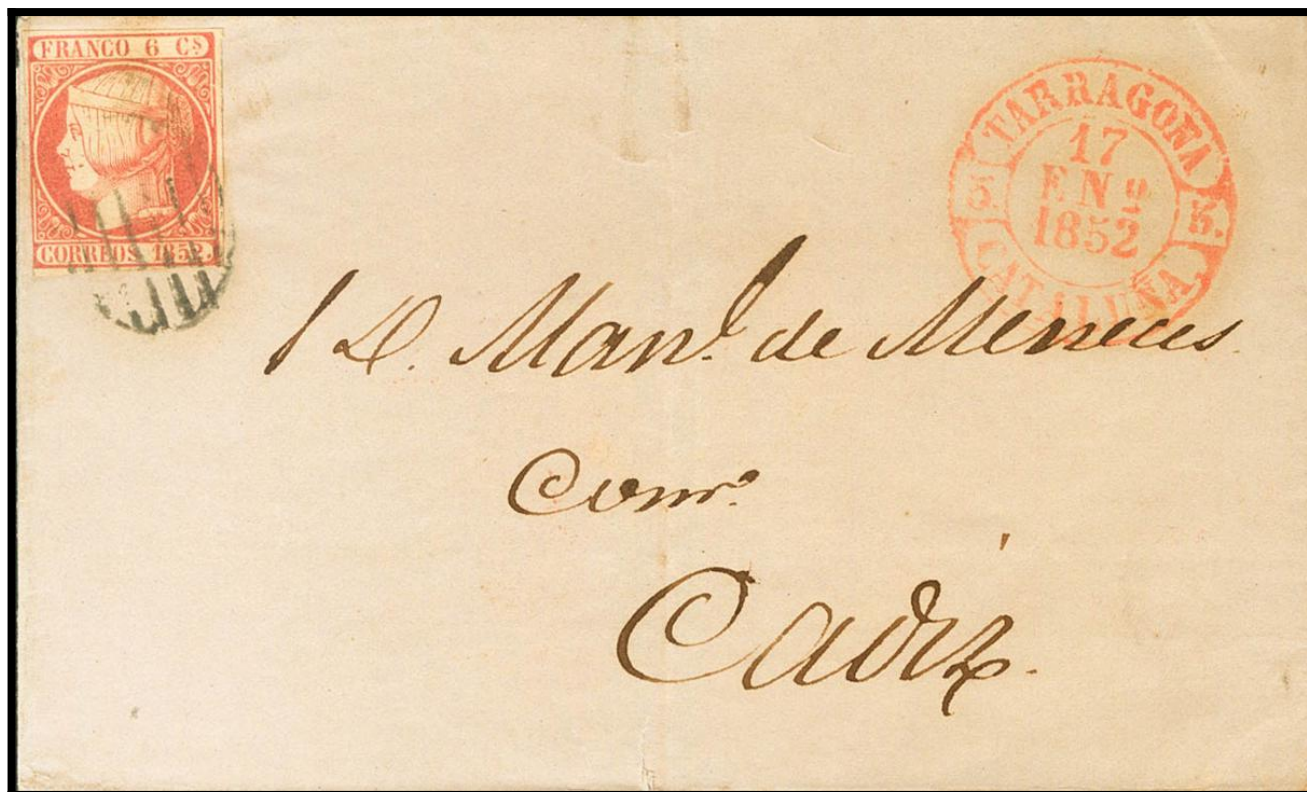 FRANCO 6 Cs
CORREOS 1852.
TARRAGONA
17
ENº
1852
3. 3.
CATALUÑA.
D. Manl. de Meneces
Comº
Cadiz.